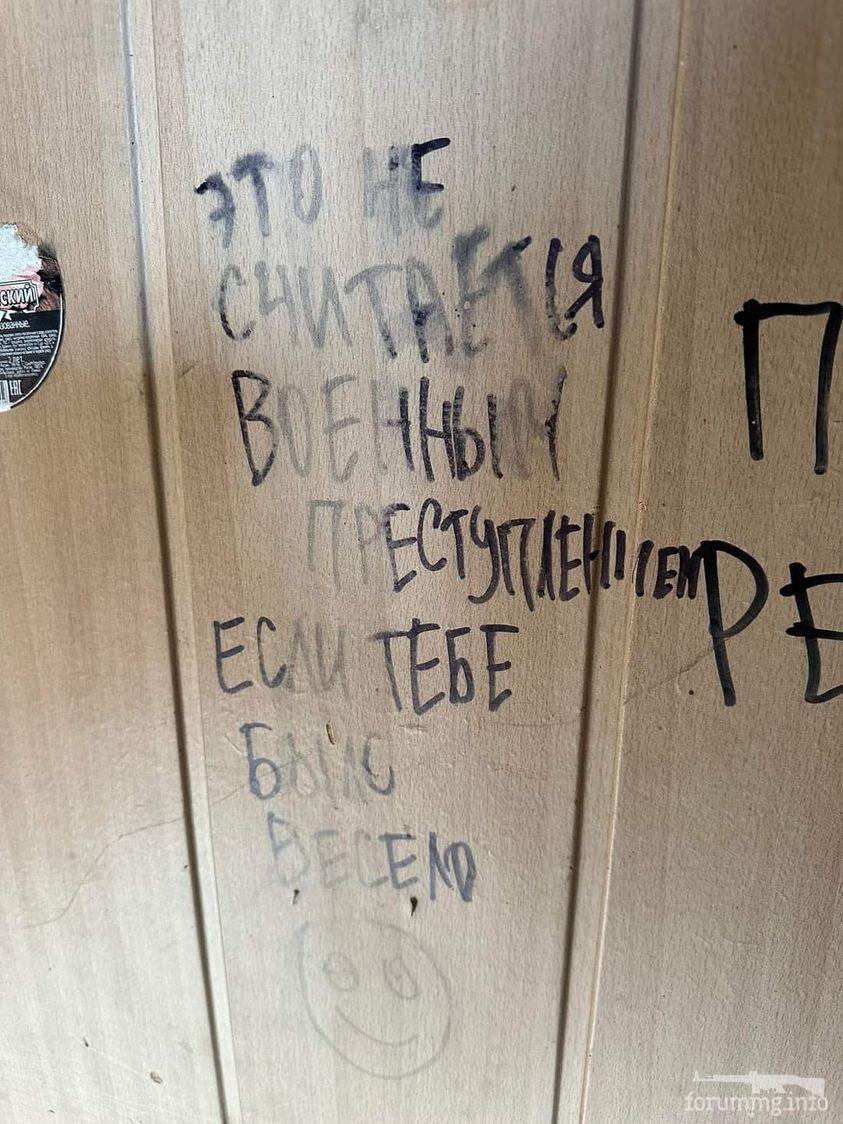 ЭТО НЕ
СЧИТАЕТСЯ
ВОЕННЫМ
ПРЕСТУПЛЕНИЕМ
ЕСЛИ ТЕБЕ
БЫЛО
ВЕСЕЛО
П
РЕ
СКИЙ
2 ЛЕТ
EAC
forummg.info